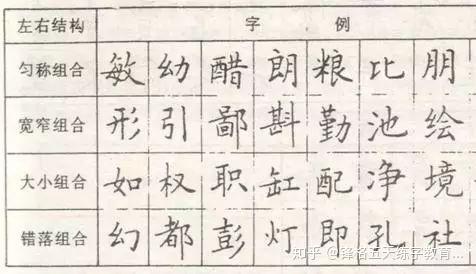 左右结构 字例
匀称组合 敏 幼 醋 朗 粮 比 朋
宽窄组合 形 引 鄙 斟 勤 池 绘
大小组合 如 权 职 缸 配 净 境
错落组合 幻 都 彭 灯 即 孔 社
知乎 @锋名五天练字教育...